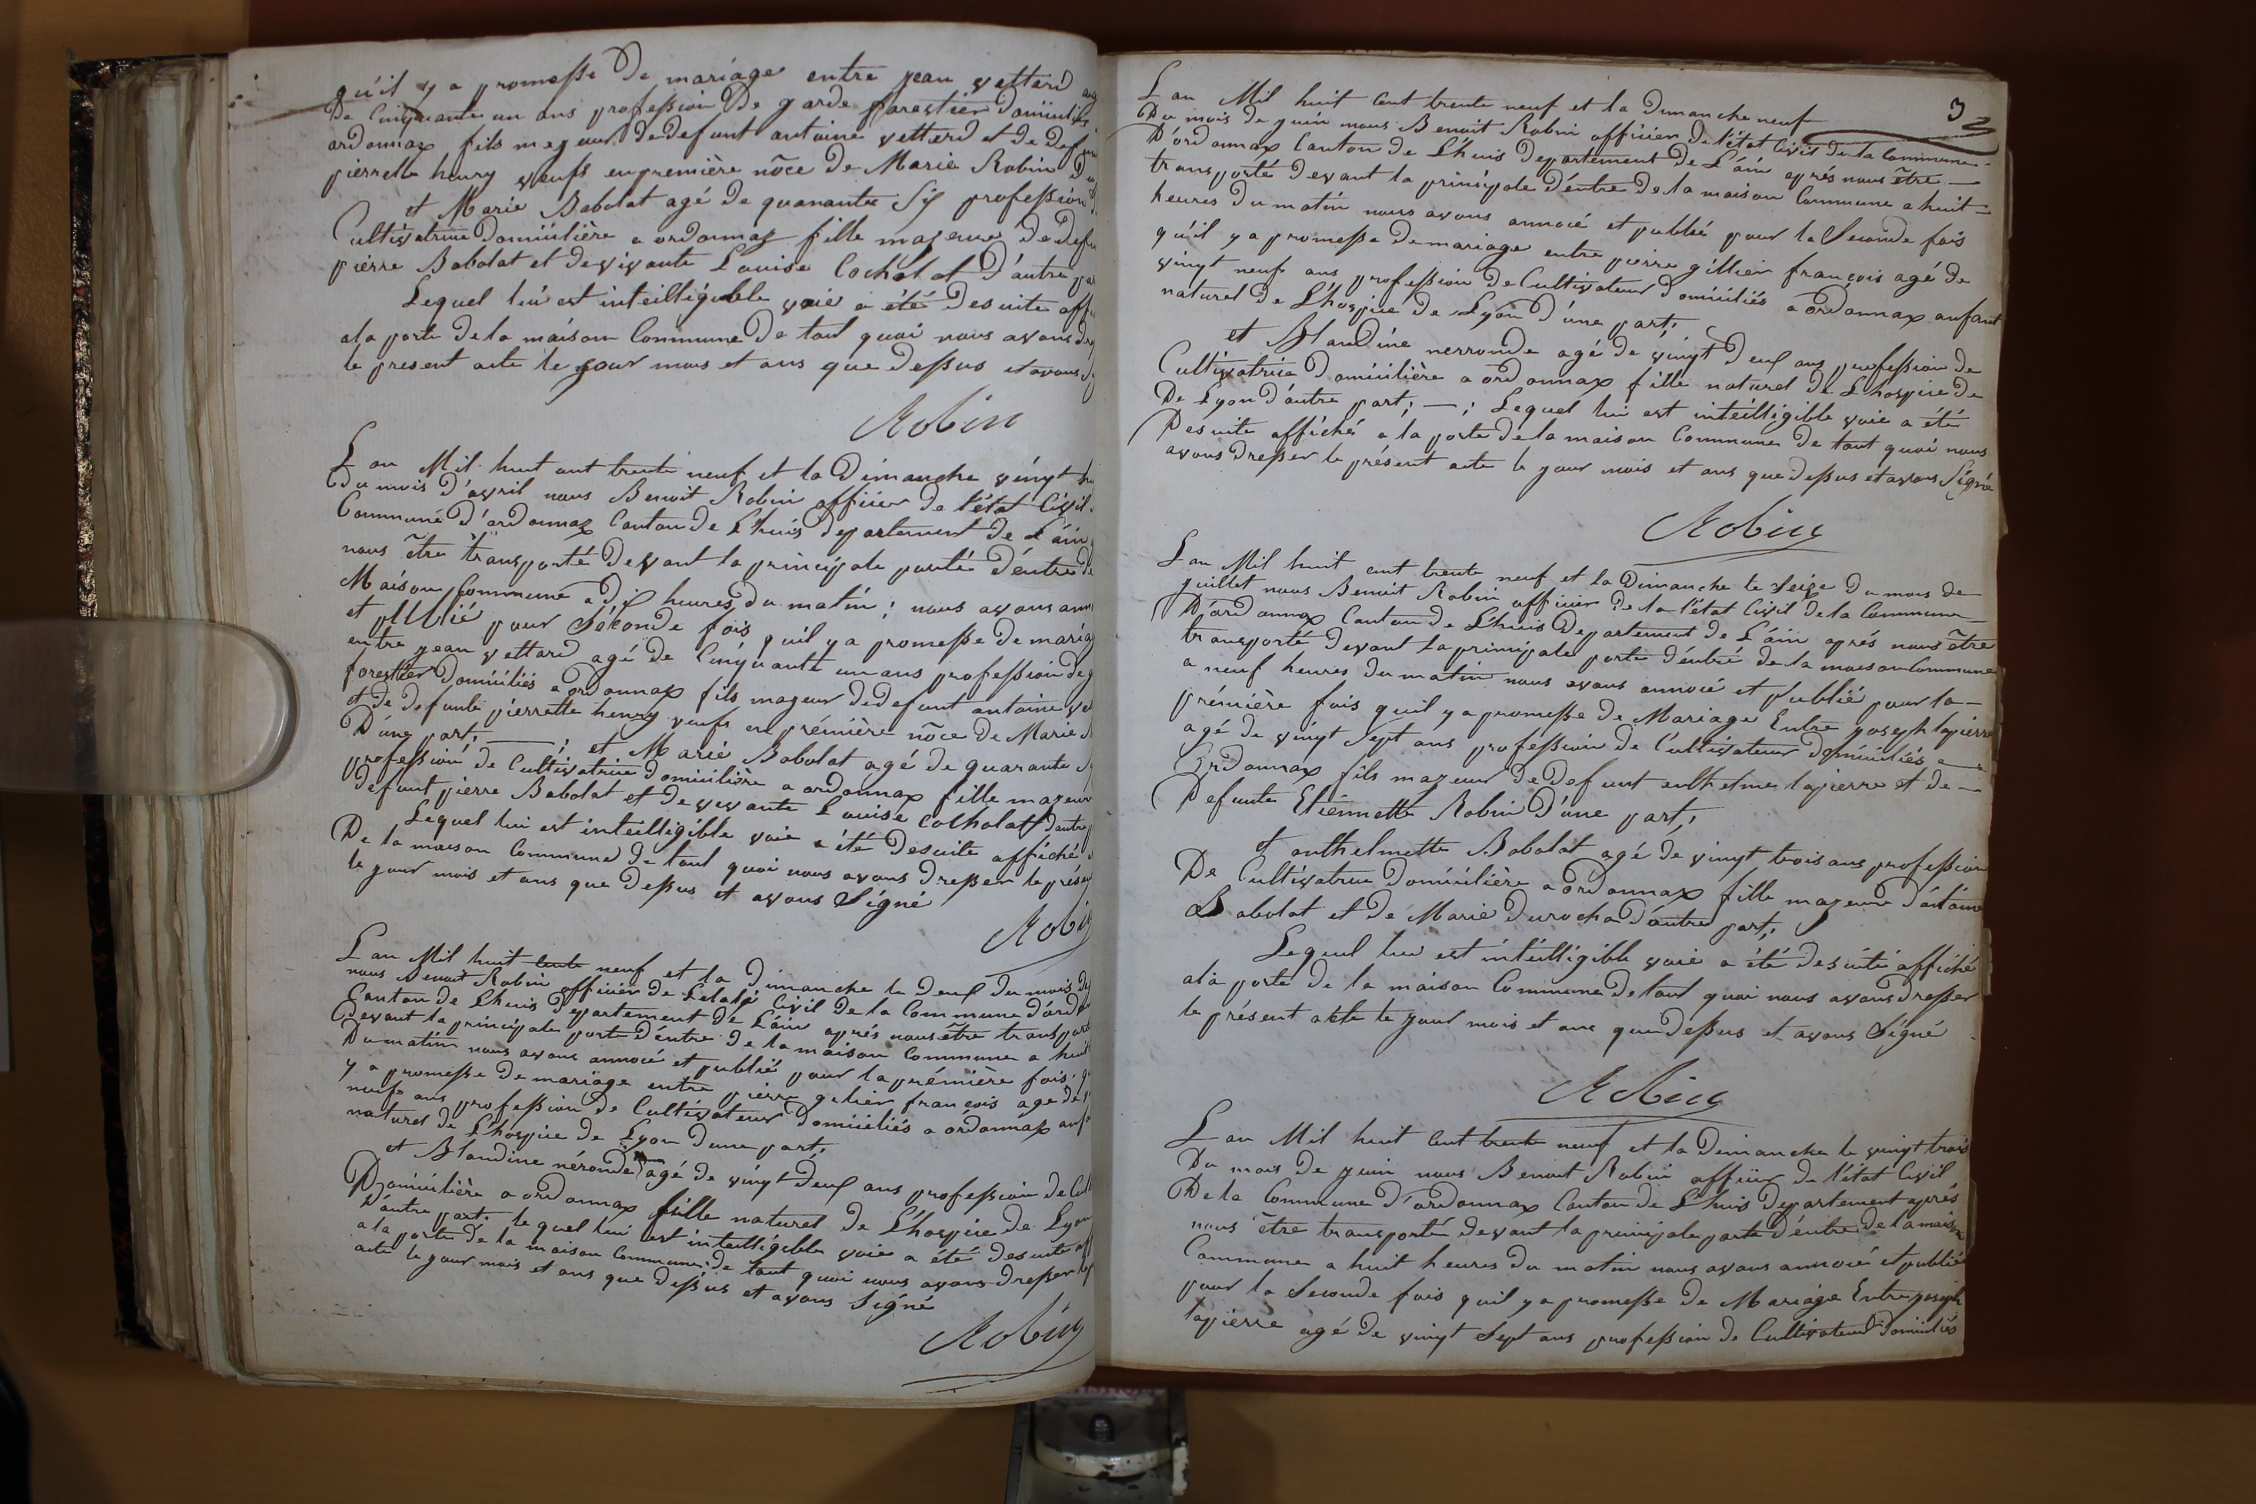 qu'il y a promesse de mariage entre jean vettard
De Cinquante un ans profession De garde forestier Domicilié
ordonnax fils majeur de defunt antoine vettard et de Def
pierrette henry veuf en première nôce De Marie Robin D
et Marie Babolat agé De quarante six profession
Cultivatrice Domicilière a ordonnax fille majeure De def
pierre Babolat et de vivante Louise Cocholat D'autre
Lequel lui est inteilligible voie a été De suite aff
ala porte De la maison Commune De tout quoi nous avons
le present acte le jour mois et ans que Dessus et avons
Robin
L an Mil huit cent trente neuf et la Dimanche vingt
Du mois D'avril nous Benoit Robin officier De l'état Civil
Commune D'ordonnax Canton de L'huis departement De L'ain
nous être transporté Devant la principale portée D'entre de
Maison Commune a Dix heures Du matin ; nous avons
et publié pour Séconde fois qu'il y a promesse De maria
entre jean vettard agé De Cinquante un ans profession De
forestier Domiciliés a ordonnax fils majeur De defunt antoine
et De defunte pierrette henry veufs en prémière nôce De Marie
D'une part ; et Marie Babolat agé De quarante
profession De Cultivatrice Domicilière a ordonnax fille majeur
Defunt pierre Babolat et De vivante Louise Colholat D'autre
Lequel lui est inteilligible voie a été De suite affiché
De la maison Commune De tout quoi nous avons Dresser le prése
le jour mois et ans que Dessus et avons Signé
Robin
L an Mil huit cente neuf et la Dimanche le Deux Du mois
nous Benoit Robin officier De Letat Civil De la Commune D'ord
Canton de L'huis Departement De L'ain aprés nous être transpor
Devant la principale porte D'entre De la maison Commune a huit
Du matin nous avons annocé et publié pour la prémière fois
y a promesse De mariage entre pierre gilier françois age De
neuf ans profession De Cultivateur Domiciliés a ordonnax
naturel de L'hospice De Lyon D'une part ;
et Blandine néronde agé De vingt Deux ans profession De
Domicilière a ordonnax fille naturel De L'hospice De Lyon
D'autre part. lequel lui est inteilligible voie a été De suite
a la porte De la maison Commune De tout quoi nous avons Dresser
acte le jour mois et ans que Dessus et avons Signé
Robin
3
L an Mil huit Cent trente neuf et la Dimanche neuf
Du mois De juin nous Benoit Robin officier De l'état Civil De la Commune
D'ordonnax Canton de L'huis Departement De L'ain aprés nous être
transporté Devant la principale D'entre De la maison Commune a huit
heures Du matin nous avons annocé et publié pour la Seconde fois
qu'il y a promesse De mariage entre pierre gillier françois agé De
vingt neuf ans profession De Cultivateur Domiciliés a ordonnax anfant
naturel De L'hospice De Lyon D'une part ;
et Blandine nerronde agé De vingt Deux ans profession De
Cultivatrice Domicilière a ordonnax fille naturel De L'hospice De
De Lyon D'autre part ; — ; Lequel lui est inteilligible voie a été
De suite affiché a la porte De la maison Commune De tout quoi nous
avons Dresser le présent acte le jour mois et ans que Dessus et avons Signé
Robin
L an Mil huit cent trente neuf et la Dimanche le Seize Du mois De
juillet nous Benoit Robin officier De la l'état Civil De la Commune
D'ordonnax Canton de L'huis Departement De L'ain aprés nous être
transporté Devant la principale porte D'entré De la maison Commune
a neuf heures Du matin nous avons annocé et publié pour la
prémière fois quil y a promesse De Mariage Entre joseph lapierre
agé De vingt Sept ans profession De Cultivateur Domiciliés a
Ordonnax fils majeur De Defunt enthelme lapierre et De
Defunte Etiennette Robin D'une part ;
et anthelmette Babolat agé De vingt trois ans profession
De Cultivatrice Domicilière a ordonnax fille majeure D'antoine
Babolat et De Marie Durocha D'autre part ;
Lequel lui est intéilligible voie a été De suité affiché
ala porte De la maison Commune De tout quoi nous avons Dresser
le présent acte le jour mois et ans que Dessus et avons Signé
Robin
L an Mil huit Cent trente neuf et la Dimanche le vingt trois
Du mois De juin nous Benoit Robin officier De l'état Civil
De la Commune D'ordonnax Canton de L'huis Departement aprés
nous être transporté Devant la principale porte D'entre De la maison
Commune a huit heures Du matin nous avons annocé et publié
pour la Seconde fois quil y a promesse De Mariage Entre joseph
lapierre agé De vingt Sept ans profession De Cultivateur Domiciliés